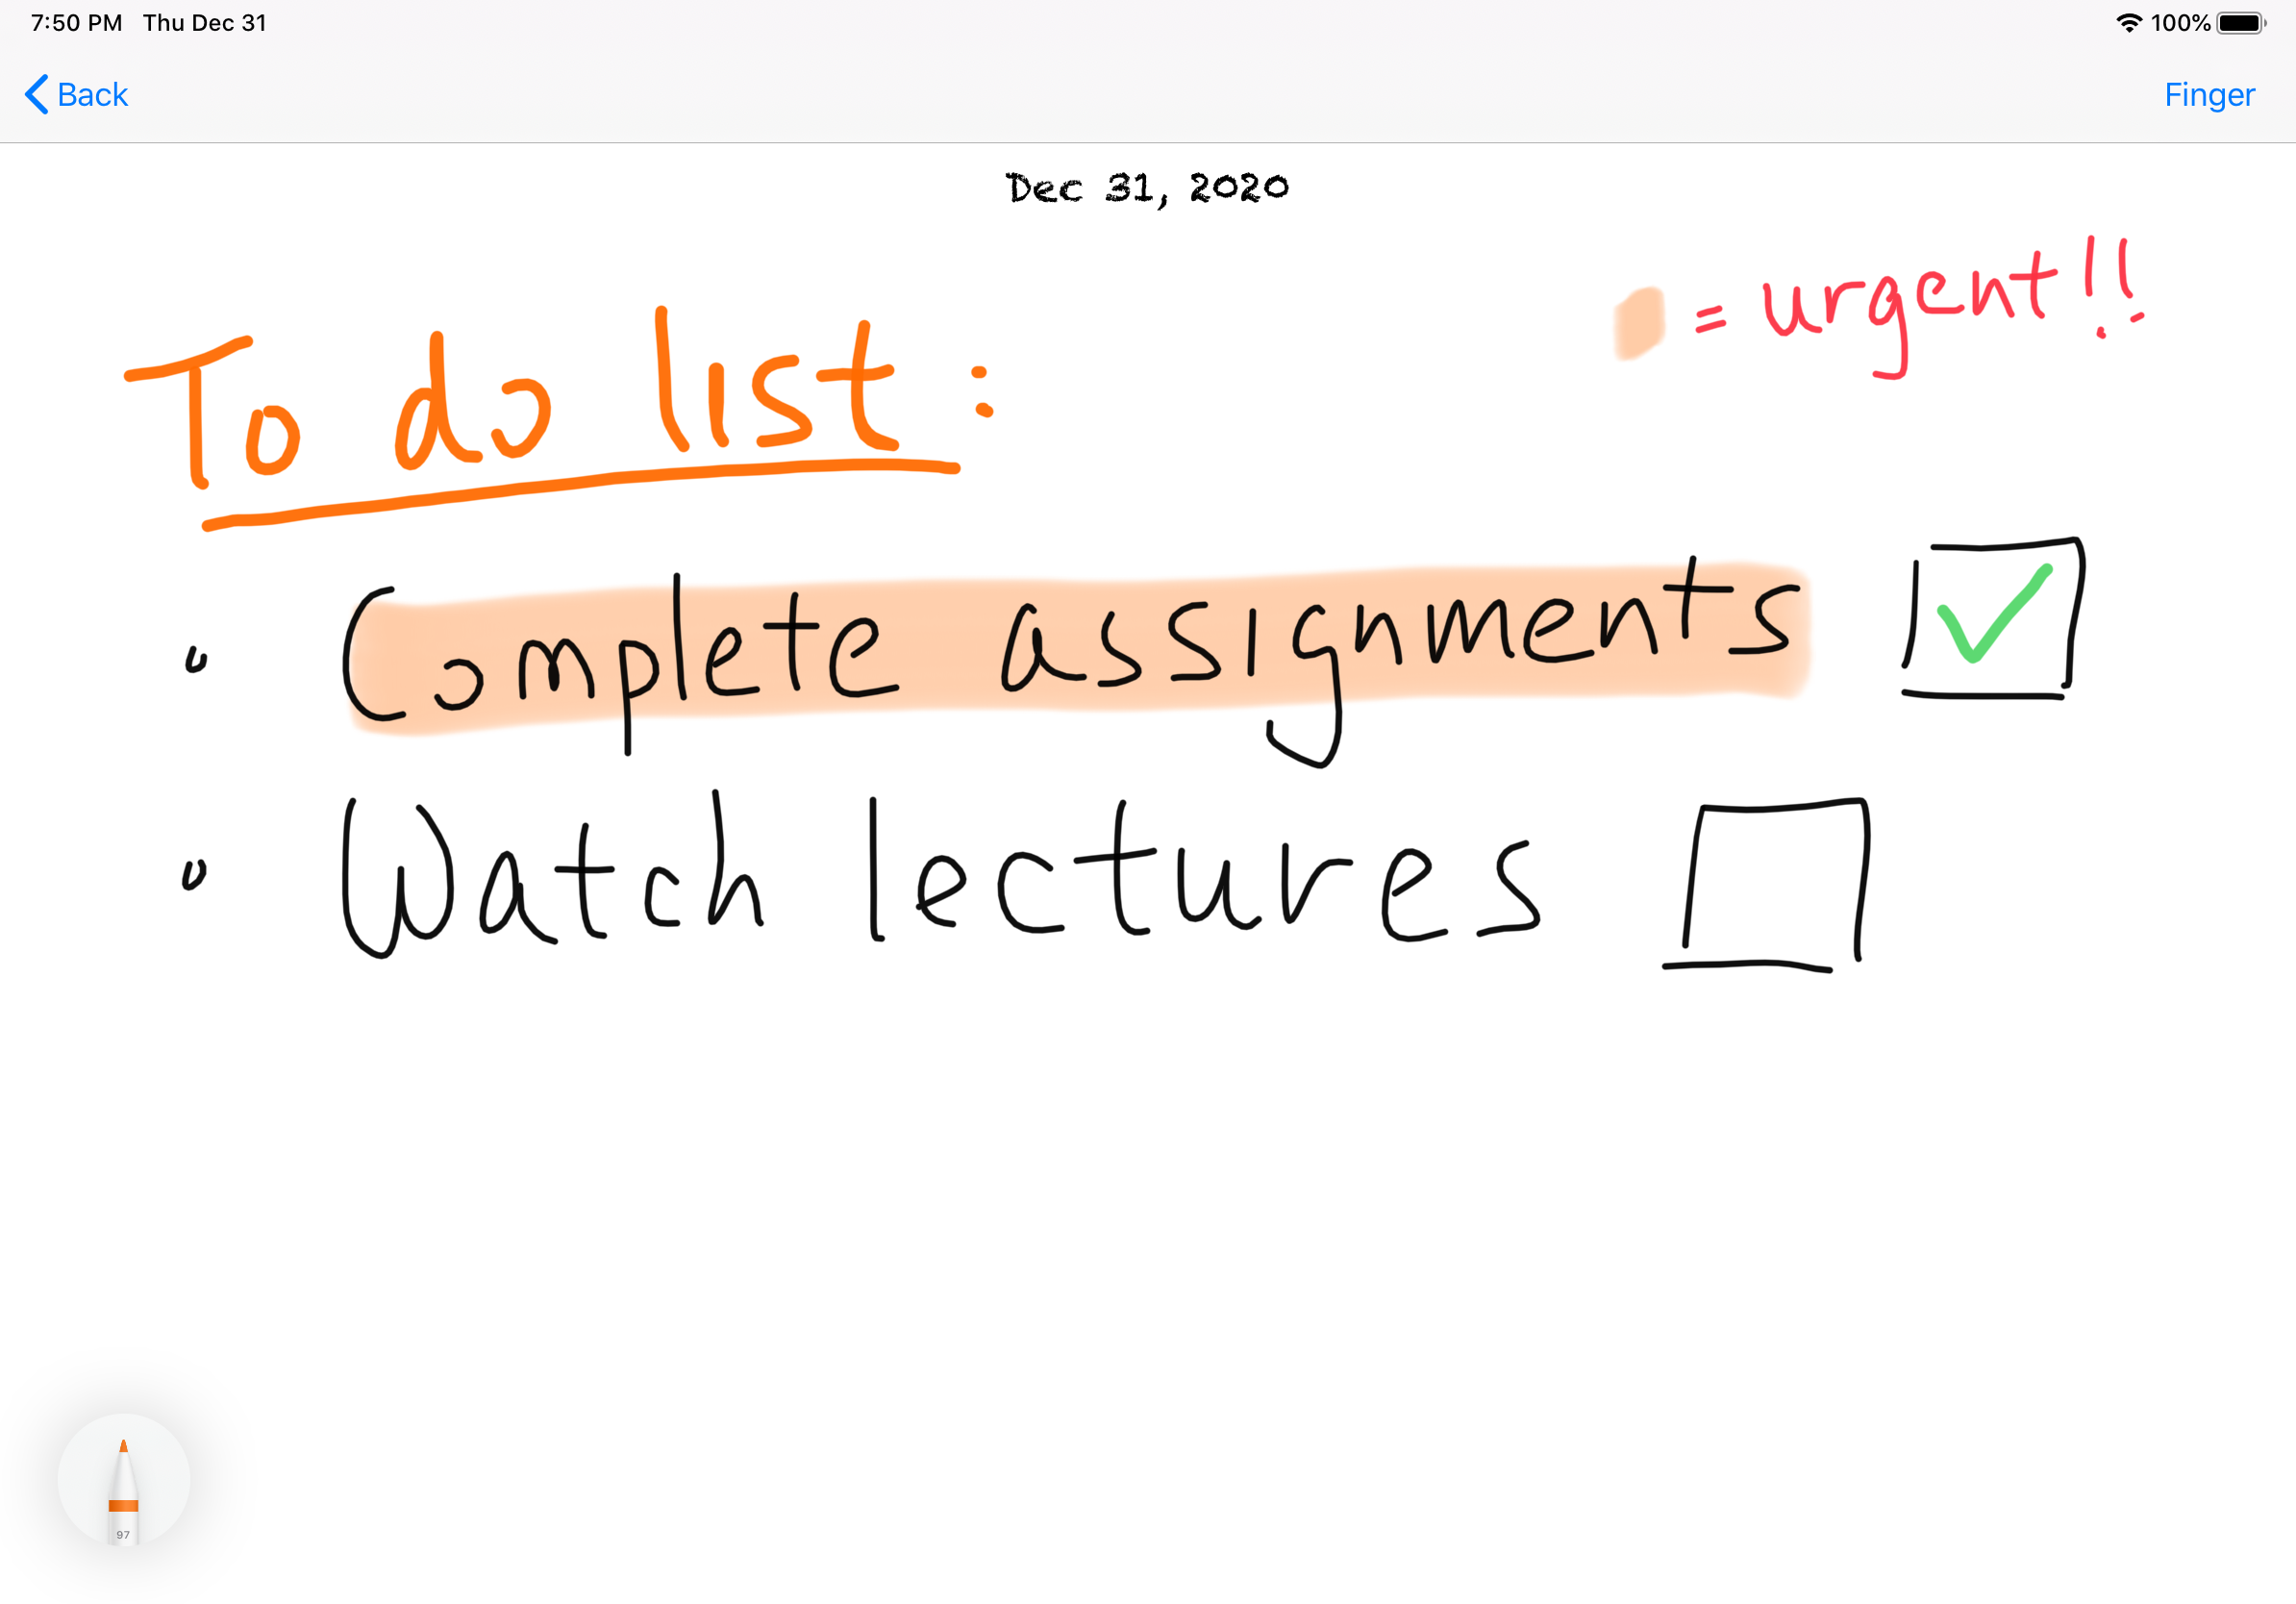 7:50 PM Thu Dec 31 100%
Back Finger
Dec 31, 2020
= urgent!!
To do list:
Complete assignments
Watch lectures
97